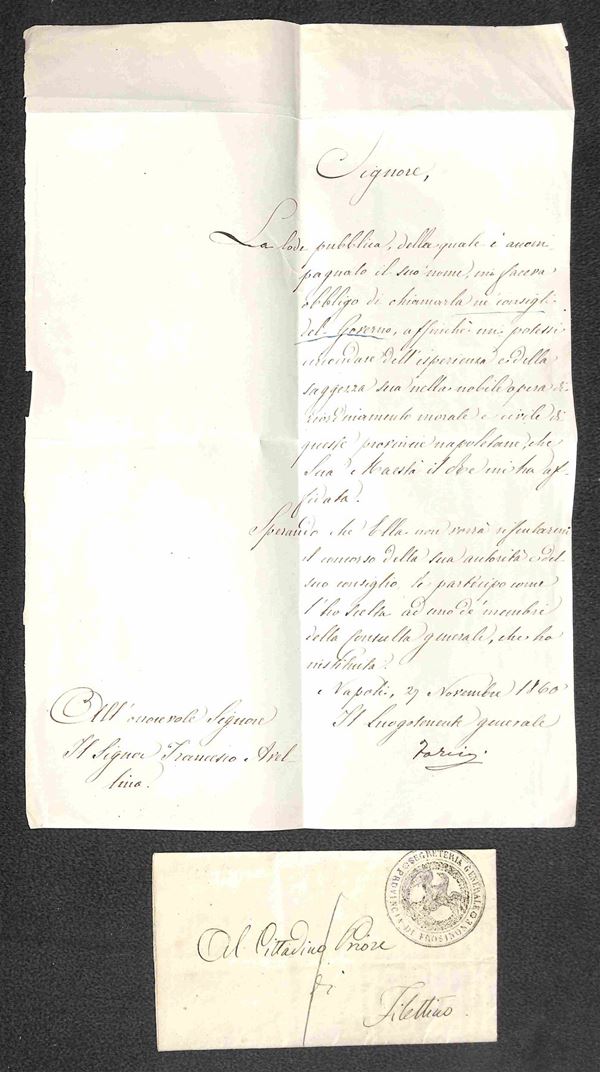 Signore,
La lode pubblica, della quale è accom-
pagnato il suo nome, mi faceva
obbligo di chiamarla ne' consigli
del Governo, affinchè mi potessi
circondare dell'esperienza e della
saggezza sua nella nobile opera di
riordinamento morale e civile di
queste provincie napoletane, che
Sua Maestà il Re mi ha af-
fidata.
Sperando che Ella non vorrà rifiutarmi
il concorso della sua autorità e del
suo consiglio le partecipo come
l'ho scelta ad uno de' membri
della Consulta generale, che ho
instituita.
Napoli, 27 Novembre 1860
Il Luogotenente generale
Farini
All'onorevole Signore
Il Signor Francesco Avel-
lino.
SEGRETERIA GENERALE
PROVINCIA DI FROSINONE
Al Cittadino Priore
di
Filettino